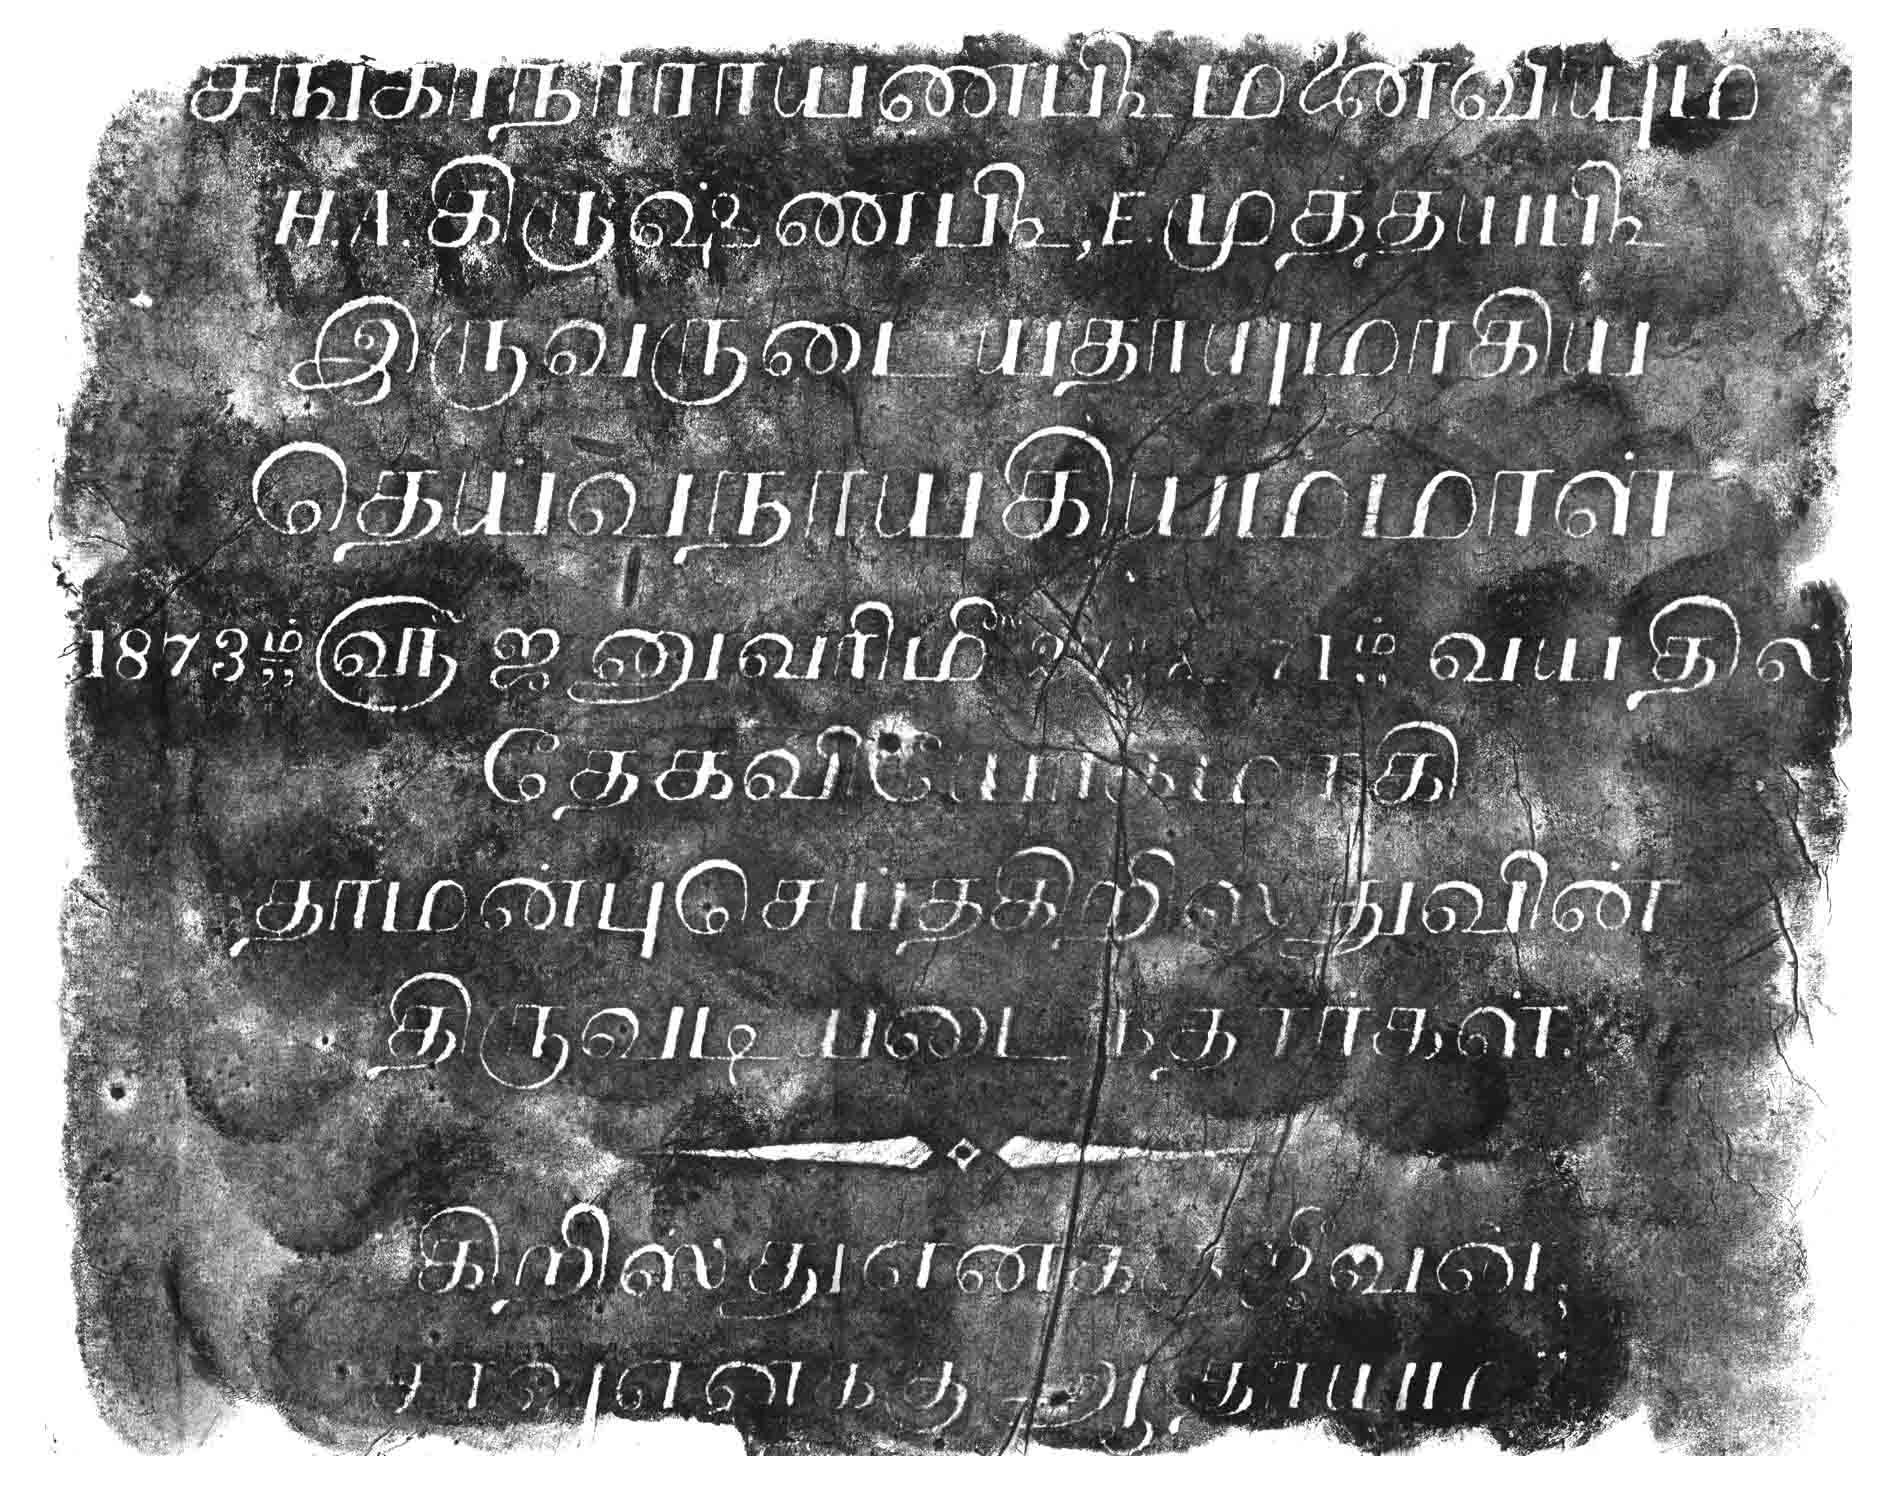 சங்கரநாராயணபிள்ளை மனைவியும்
H.A.கிருஷ்ணபிள்ளை,E.முத்தயபிள்ளை
இருவருடையதாயுமாகிய
தெய்வநாயகியம்மாள்
1873ம்௵ ஜனுவரிமீ 71ம் வயதில்
தேகவியோகமாகி
தாமன்புசெய்தகிறிஸ்துவின்
திருவடியடைந்தார்கள்.
கிறிஸ்துஎனக்குஜீவன்,
சாவுஎனக்குஆதாயம்